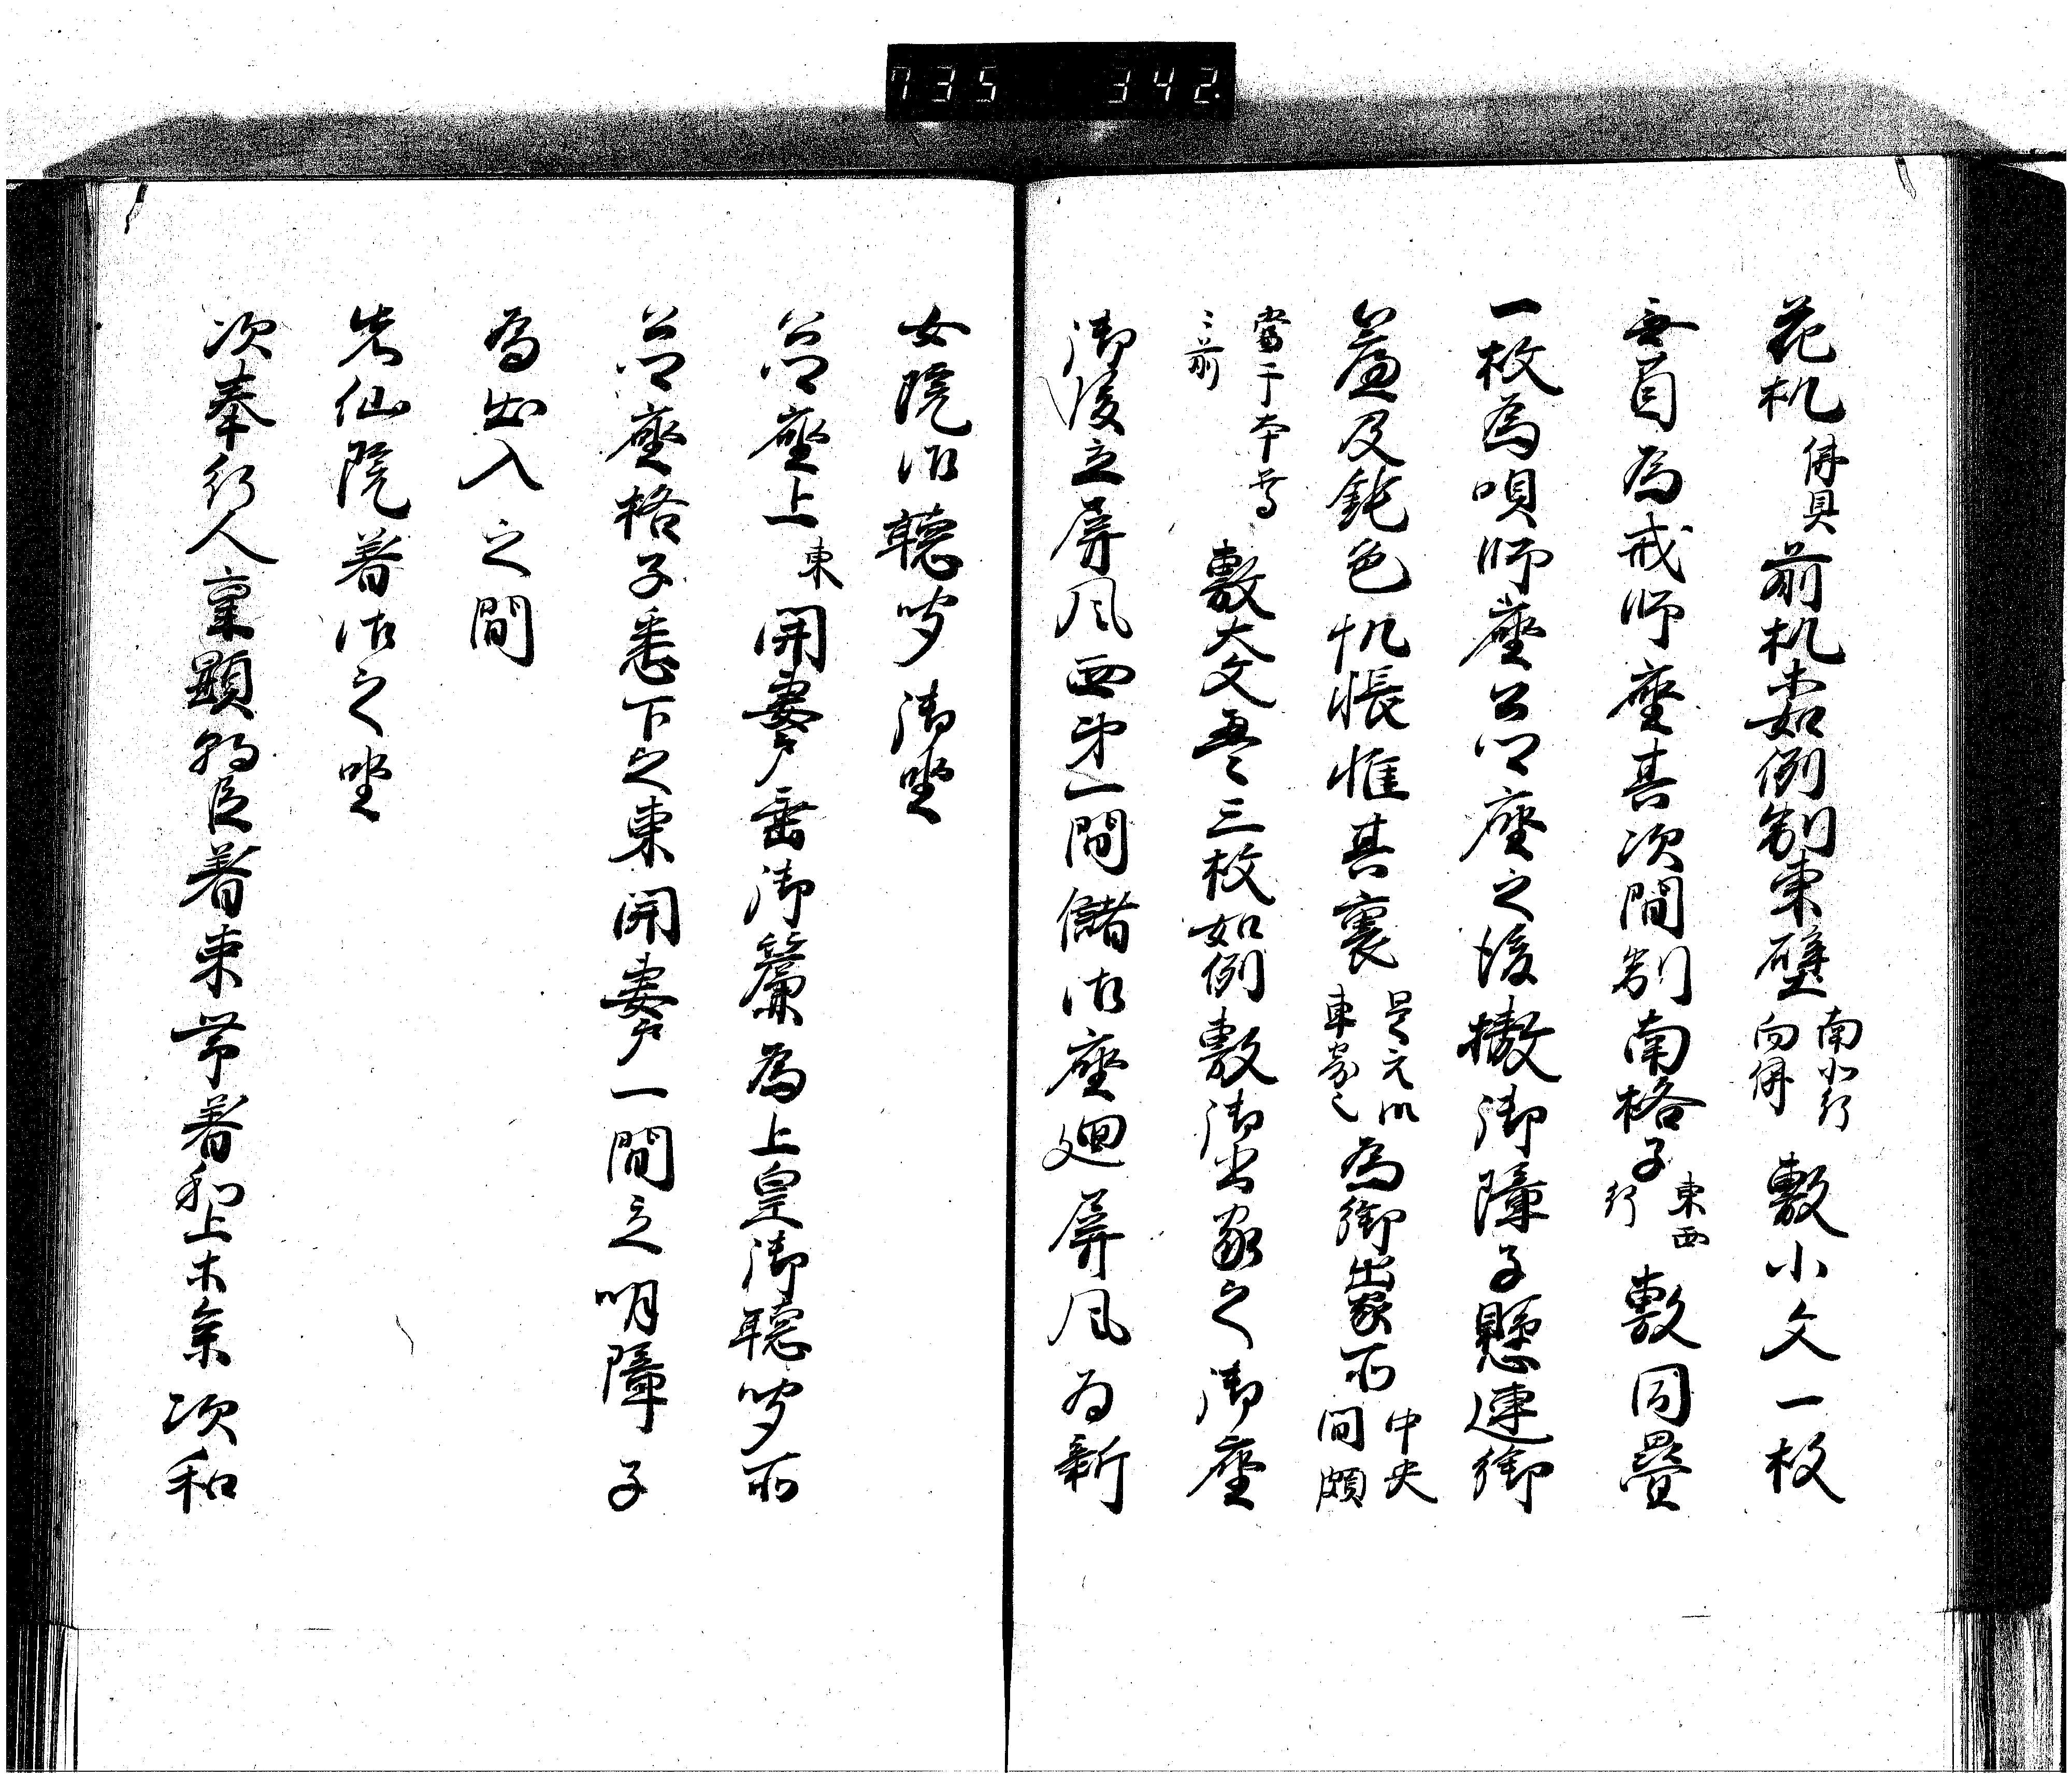 735 342
花机佛具前机如例副東壁南北行向佛敷小文一枚
為戒師座其次間副南格子東西行敷同疊
一枚為唄師座公卿座之後撤御障子懸連御
簾及鈍色几帳帷其裏是元以東家也為御出家所中央間頗
當于本尊之前敷大文疊三枚如例敷御出家之御座
御後立屏風西第一間儲御座廻屏風為新
女院御聴聞御坐
公卿座上東開妻戸垂御簾為上皇御聴聞所
公卿座格子悉下之東開妻戸一間立明障子
為出入之間
先仙院着御之坐
次奉行人業顕朝臣着束帯着和上木条次和